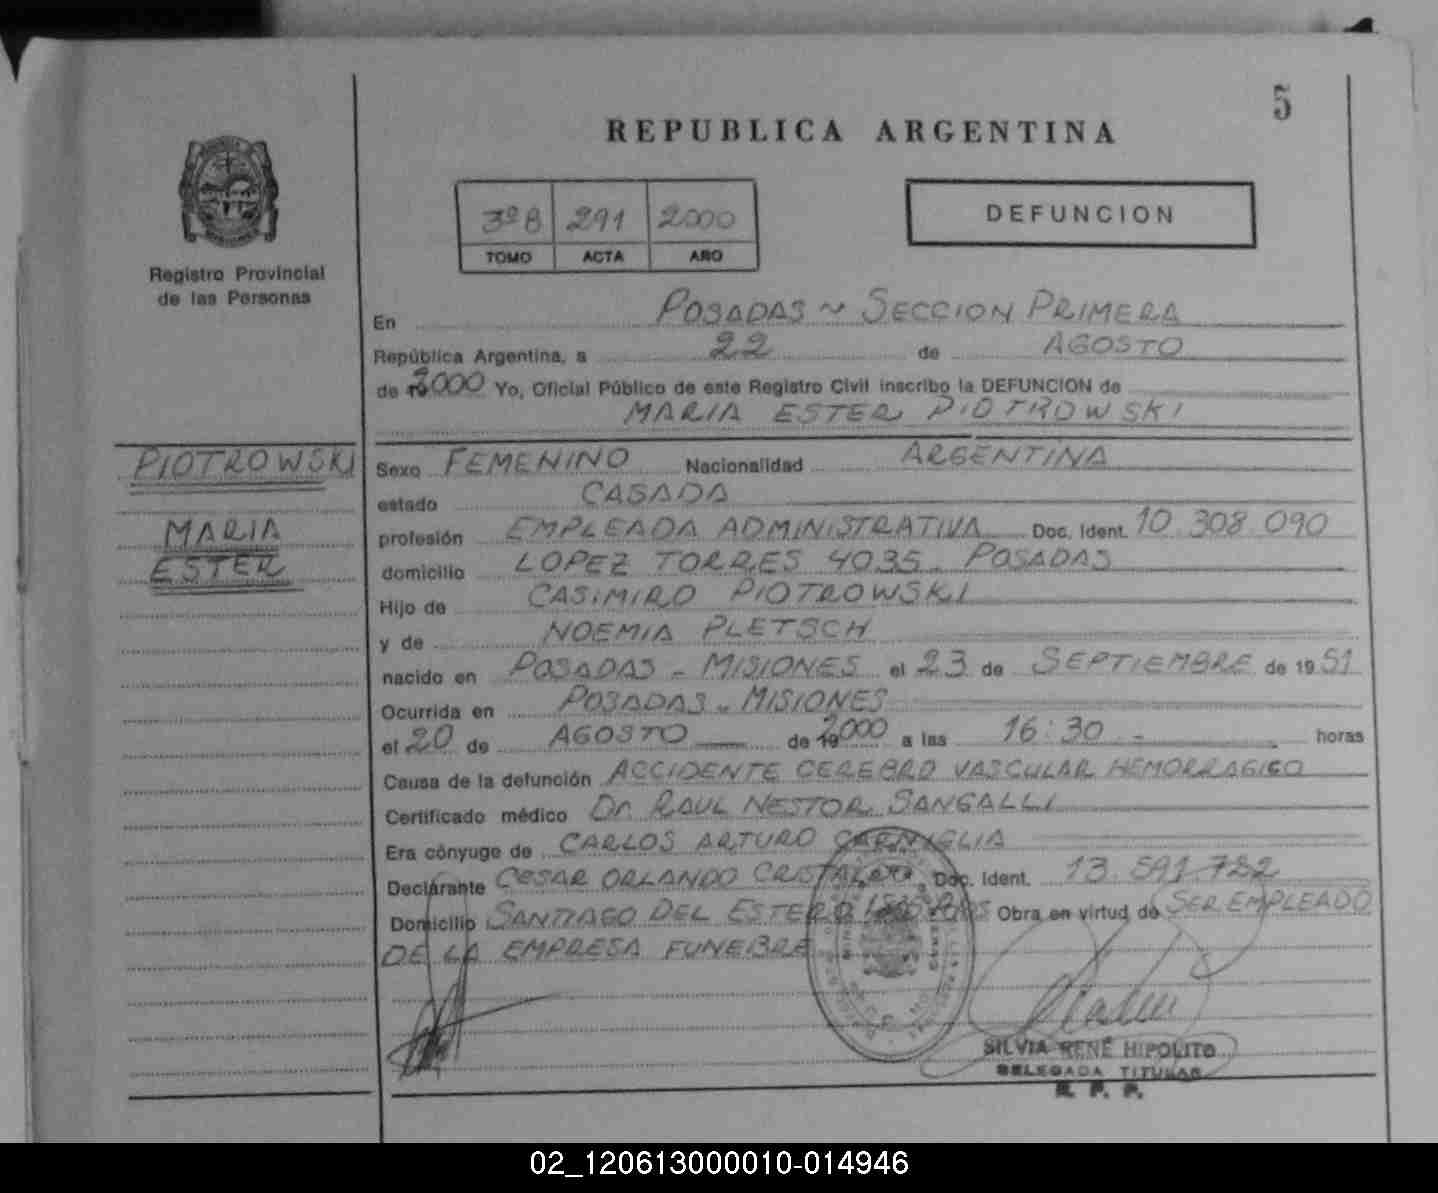 5
REPUBLICA ARGENTINA
3º B 291 2000
TOMO ACTA AÑO
DEFUNCION
Registro Provincial
de las Personas
En POSADAS ~ SECCION PRIMERA
República Argentina, a 22 de AGOSTO
de 2000 Yo, Oficial Público de este Registro Civil inscribo la DEFUNCION de
MARIA ESTER PIOTROWSKI
PIOTROWSKI
MARIA
ESTER
Sexo FEMENINO Nacionalidad ARGENTINA
estado CASADA
profesión EMPLEADA ADMINISTRATIVA Doc. Ident. 10.308.090
domicilio LOPEZ TORRES 4035 - POSADAS
Hijo de CASIMIRO PIOTROWSKI
y de NOEMIA PLETSCH
nacido en POSADAS - MISIONES el 23 de SEPTIEMBRE de 1951
Ocurrida en POSADAS - MISIONES
el 20 de AGOSTO de 2000 a las 16:30 - horas
Causa de la defunción ACCIDENTE CEREBRO VASCULAR HEMORRAGICO
Certificado médico Dr. RAUL NESTOR SANGALLI
Era cónyuge de CARLOS ARTURO CARNIGLIA
Declarante CESAR ORLANDO Doc. Ident. 13.591.722
Domicilio SANTIAGO DEL ESTERO Obra en virtud de SER EMPLEADO
DE LA EMPRESA FUNEBRE
SILVIA RENÉ HIPOLITO
DELEGADA TITULAR
R. P. P.
02_120613000010-014946